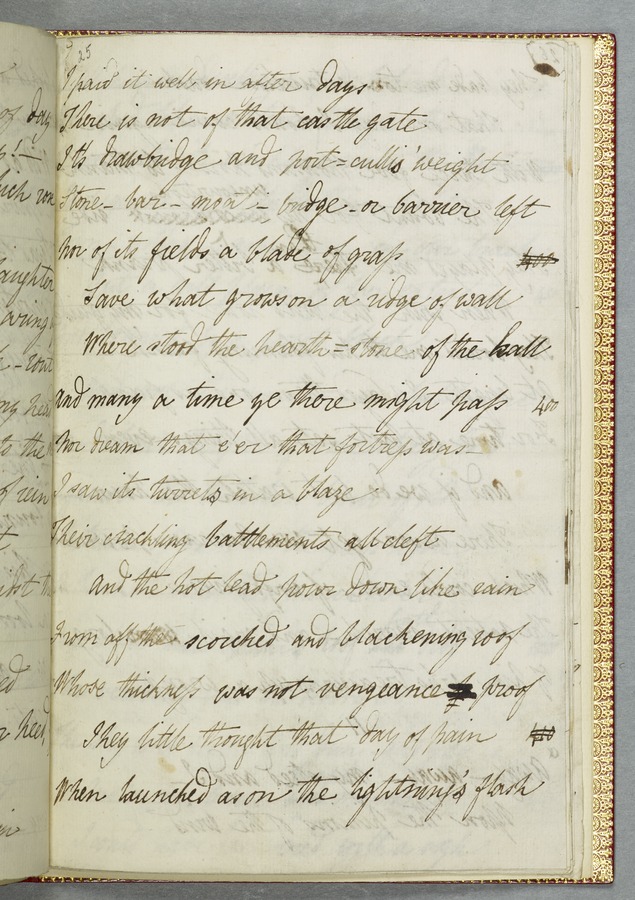 25
I paid it well in after days
There is not of that castle gate
It's drawbridge and port=cullis' weight
Stone - bar - moat - bridge - or barrier left
Nor of its fields a blade of grass
Save what grows on a ridge of wall
Where stood the hearth=stone of the hall
And many a time ye there might pass 400
Nor dream that e'er that fortress was -
I saw its turrets in a blaze
Their crackling battlements all cleft
And the hot lead pour down like rain
From off the scorched and blackening roof
Whose thickness was not vengeance proof
They little thought that day of pain
When launched as on the lightning's flash